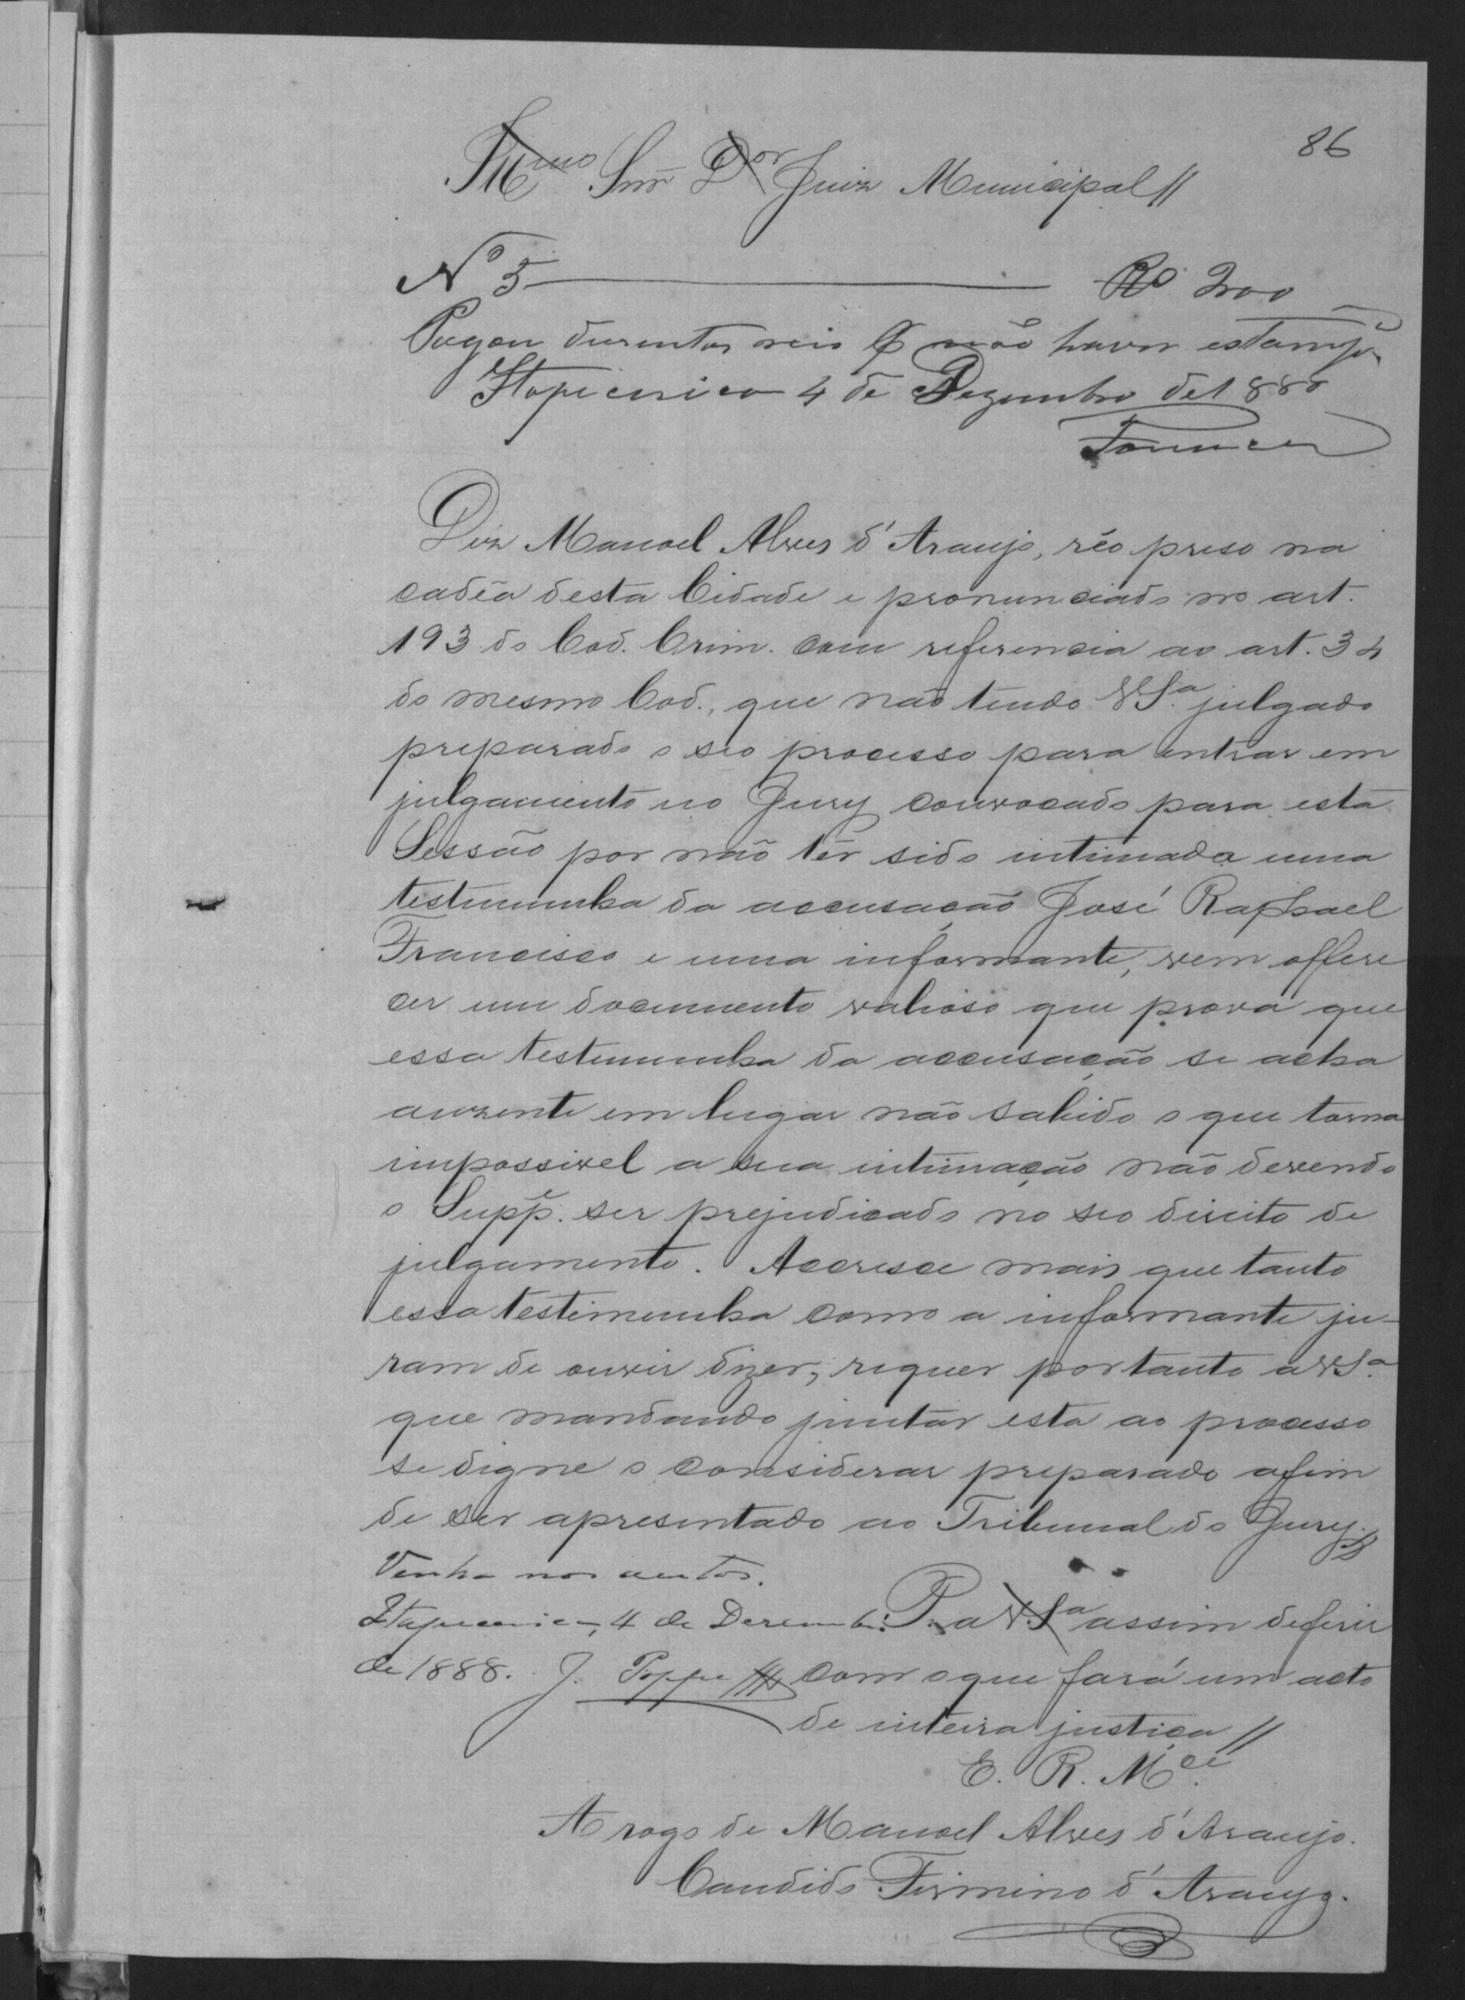 86
Illmo Snr Dor Juiz Municipal //
N 5 — Rs 200
Pagou duzentos reis q não haver estampa
Itapicurico 4 de Dezembro de 1888
Diz Manoel Alves d'Araujo, réo preso na
cadêa desta Cidade e pronunciado no art.
193 do Cod. Crim. com referencia ao art. 34
do mesmo Cod., que não tendo VSa. julgado
preparado o seo processo para entrar em
julgamento no Jury convocado para esta
Sessão por não têr sido intimada uma
testemunha da accusação José Raphael
Francisco e uma informante, vem offere
cer um documento valioso que prova que
essa testemunha da accusação se acha
auzente em lugar não sabido o que torna
impossivel a sua intimação não devendo
o Suppe. ser prejudicado no seo direito de
julgamento. Accresce mais que tanto
essa testemunha como a informante ju-
ram de ouvir dizer, requer portanto a VSa.
que mandando juntar esta ao processo
se digne o considerar preparado afim
de ser apresentado ao Tribunal do Jury. //
Venha nos autos.
Itapecerica, 4 de Dezembr.
de 1888. J. Poppe
P. a VSa assim deferir
com o que fará um acto
de inteira justiça //
E. R. Mce.
A rogo de Manoel Alves d'Araujo.
Candido Firmino d'Araujo.